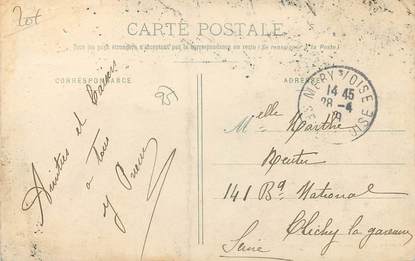 20t
CARTE POSTALE
Tous les pays étrangers n'acceptent pas la correspondance au recto (Se renseigner à la Poste)
CORRESPONDANCE
ADRESSE
95
MERY S/OISE
14 45
28 - 4
SEINE-ET-OISE
Amitiés et Baisers
a Tous
Melle Marthe
141 Bd National
Clichy la garenne
Seine